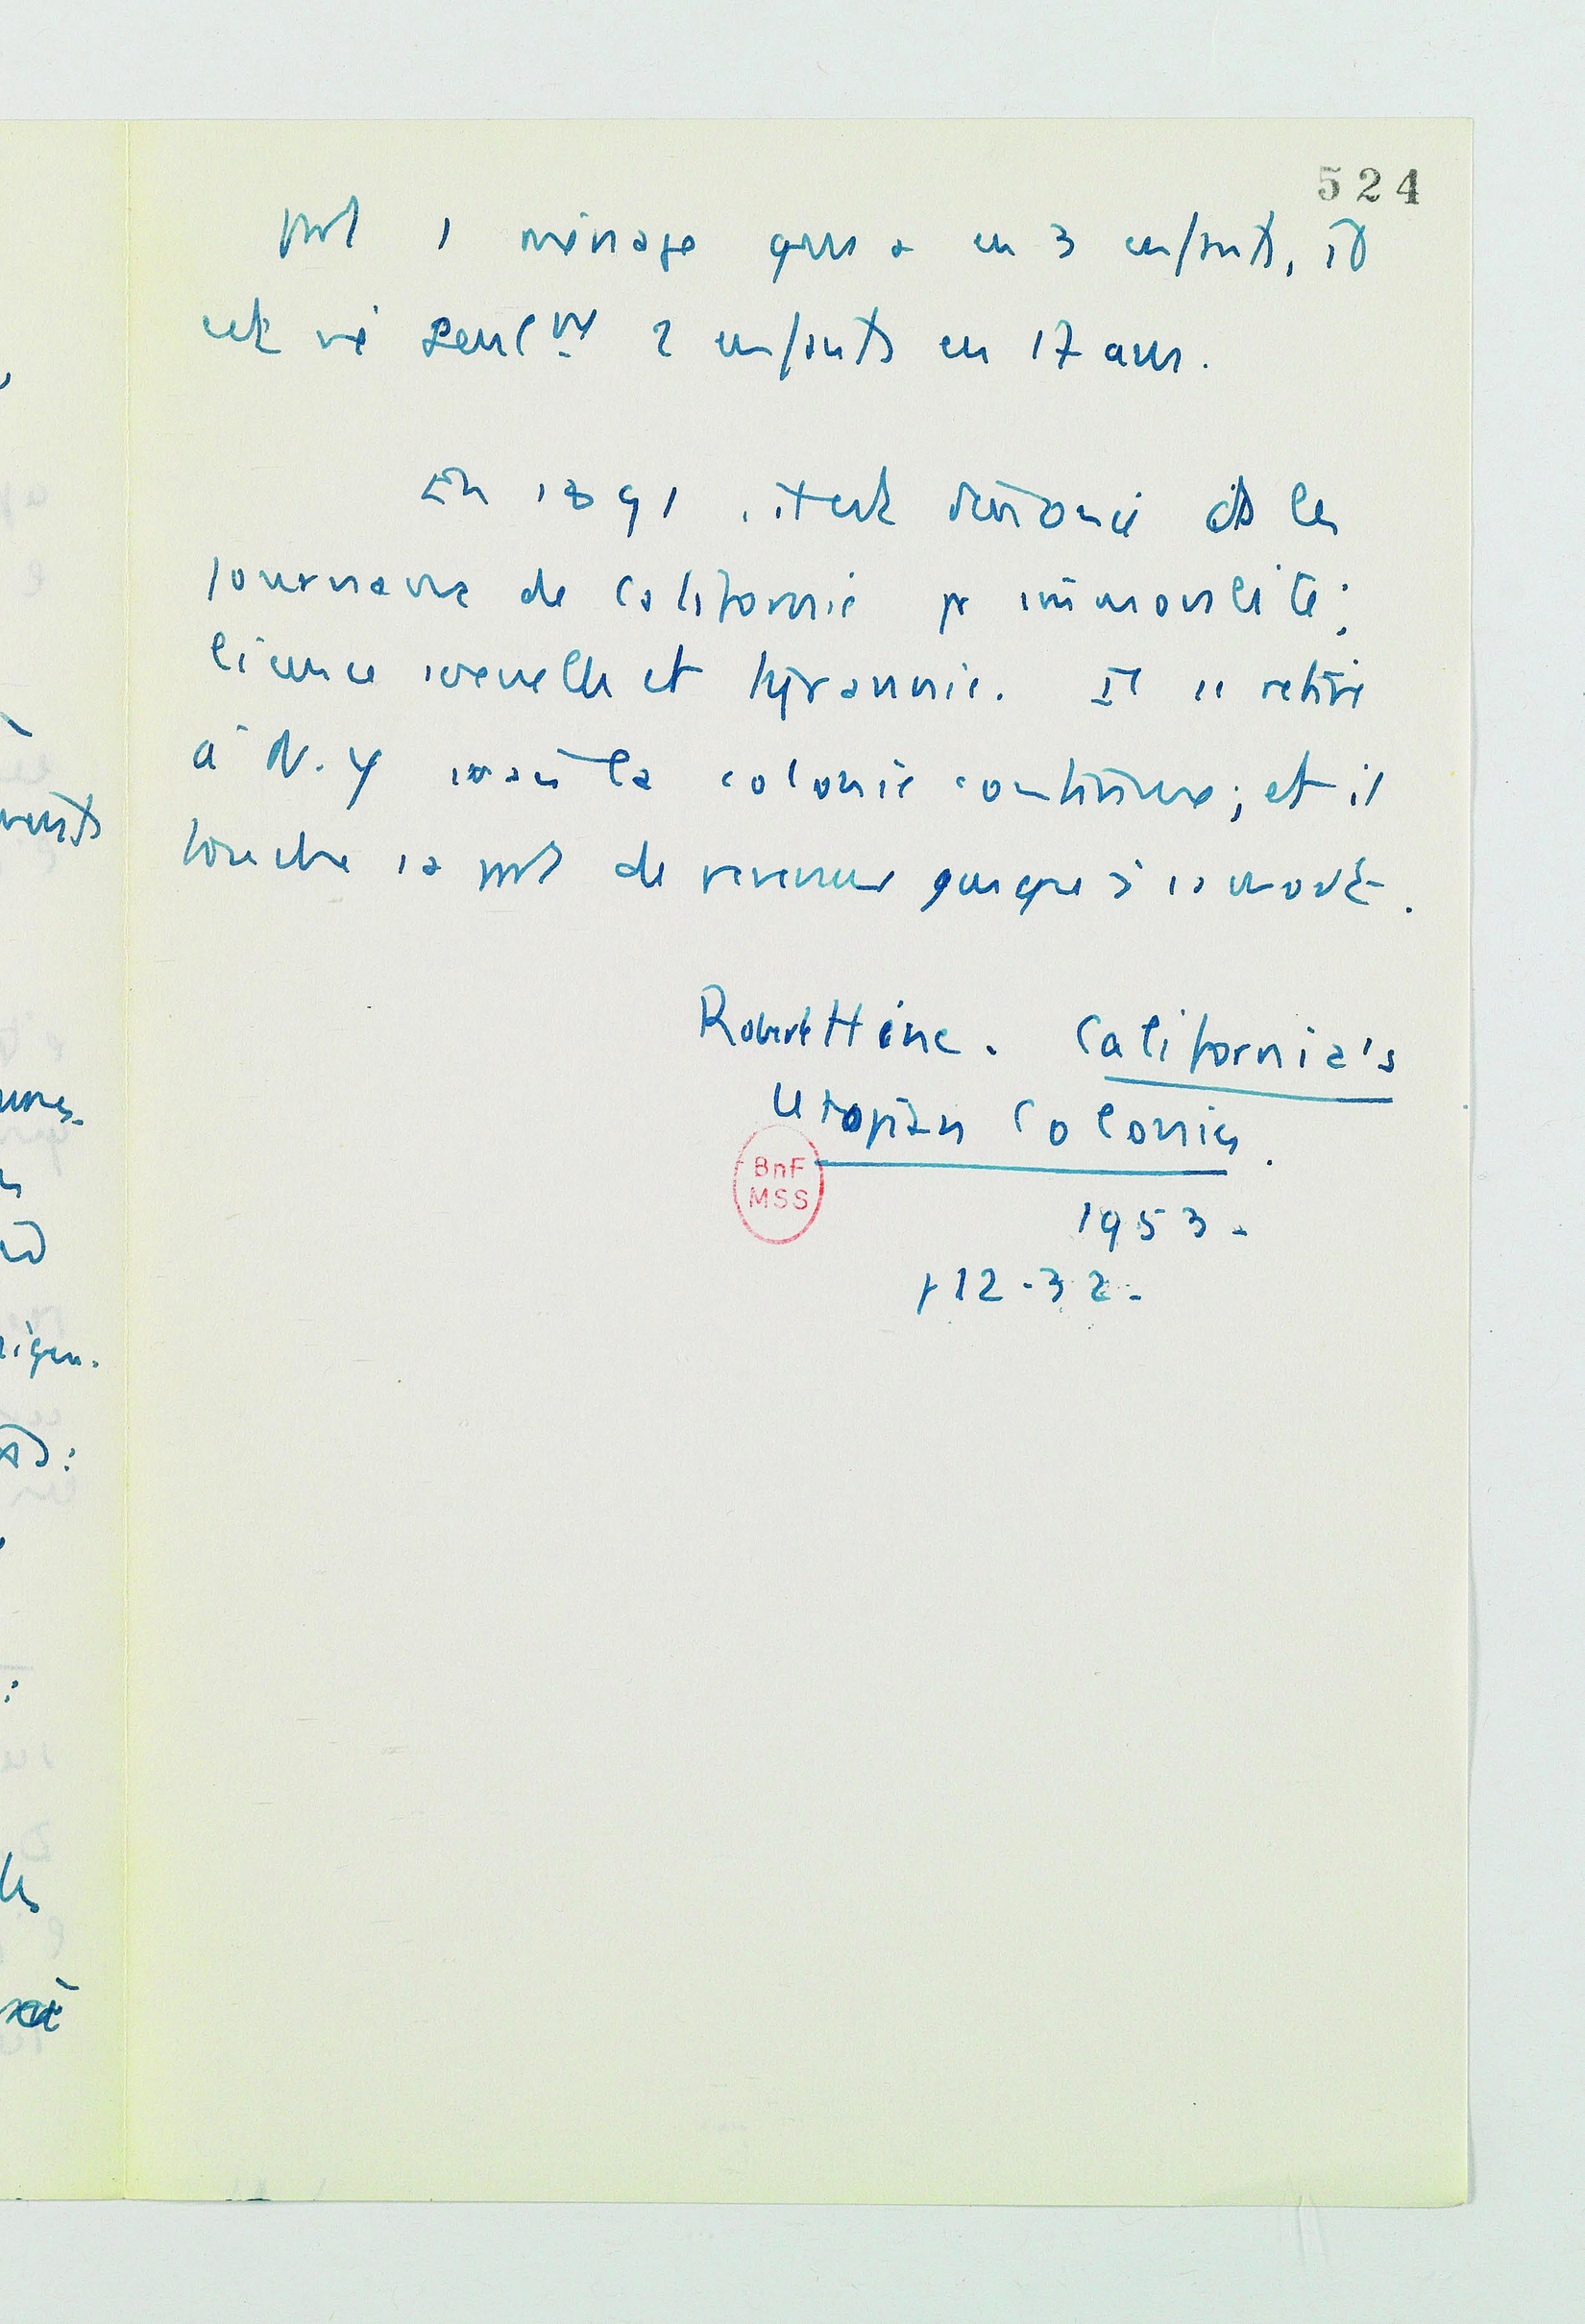 524
1 ménage qui a eu 3 enfants, il
est né seulᵐᵗ 2 enfants en 17 ans.
En 1891, il est dénoncé ds les
journaux de Californie pr immoralité;
licence sexuelle et tyrannie. Il se retire
à N.Y mais la colonie continue; et il
touche sa part de revenus jusque à sa mort.
Robert Hine. California's
Utopian Colonies.
BnF
MSS
1953.
p 12-32.